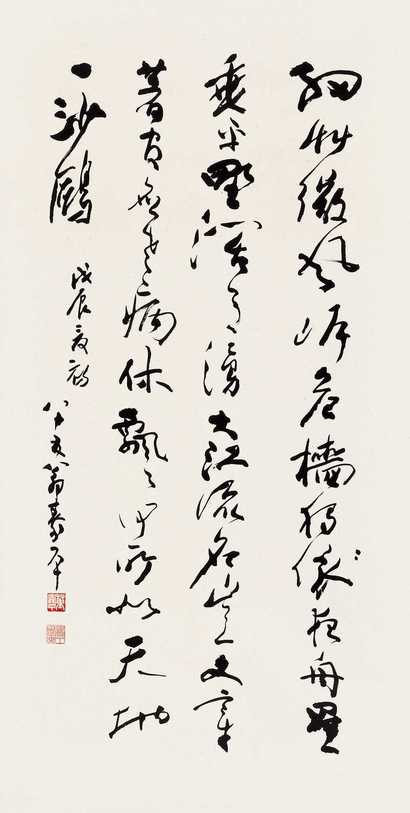 細艸微風岸危檣獨夜舟星
垂平野濶月湧大江流名豈文章
著官應老病休飄々何所似天地
一沙鷗
戊辰夏初
八十五翁壽平